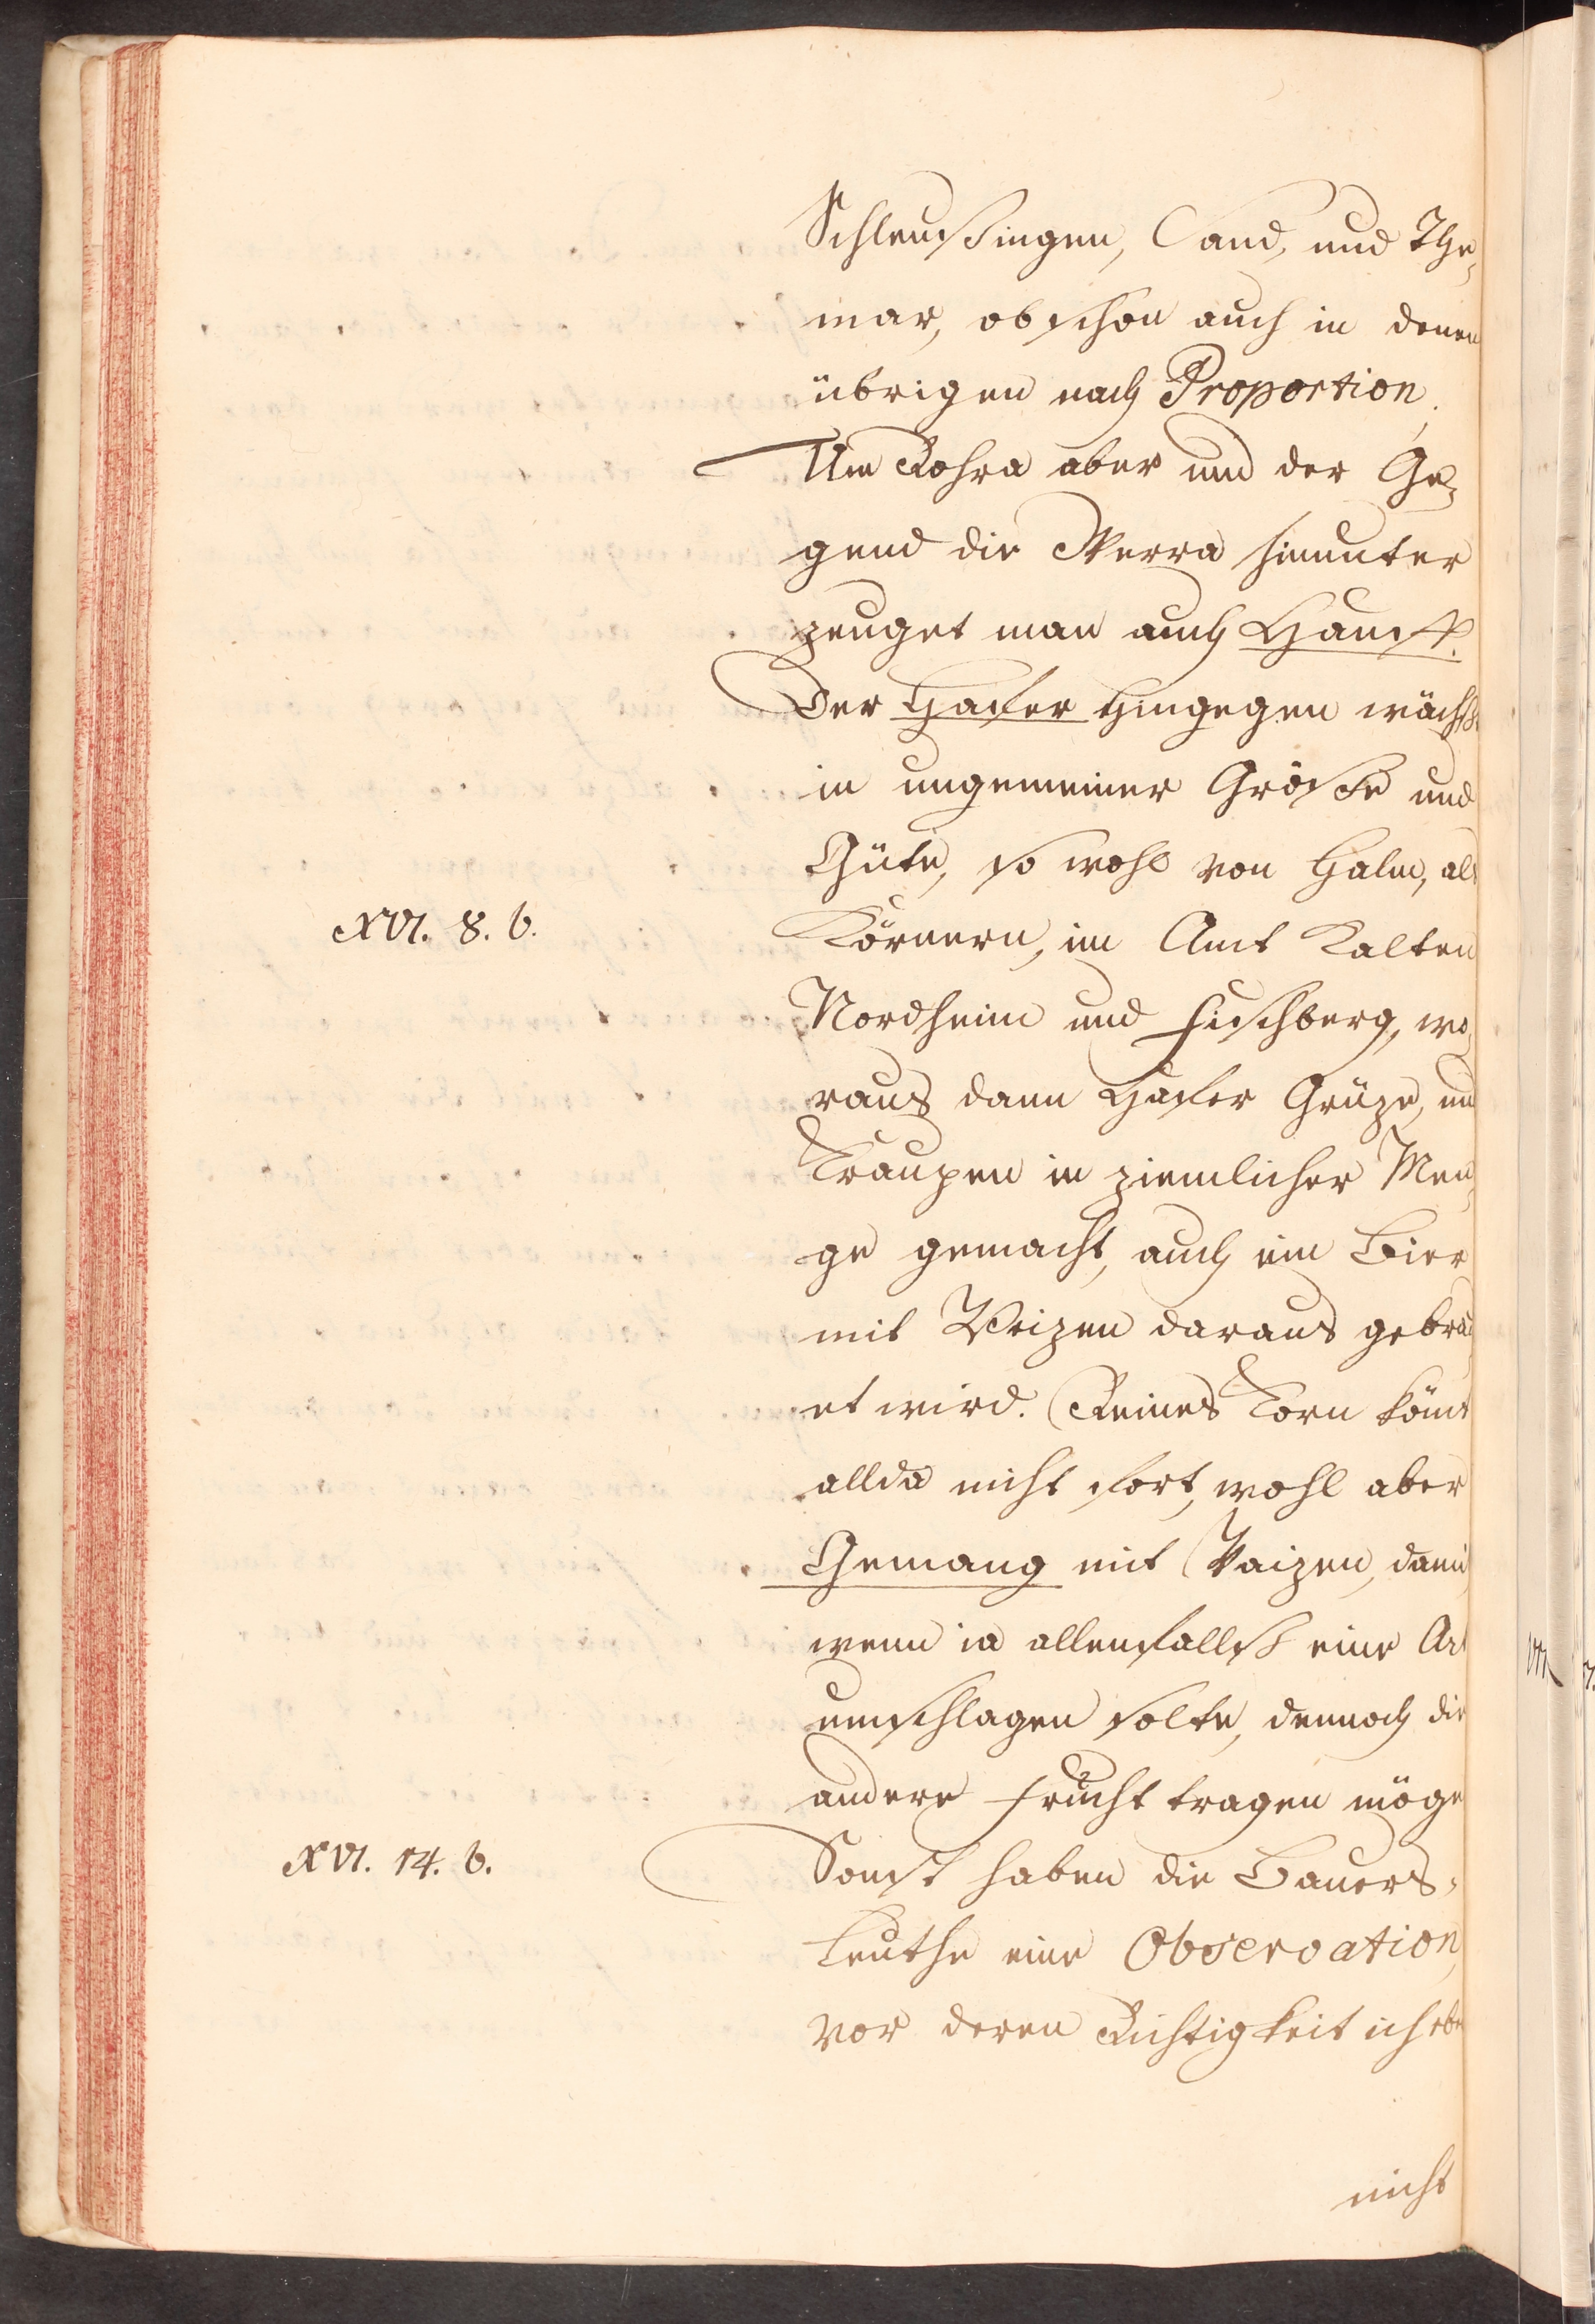 Schleußingen, Sand, und The¬
mar, obschon auch in denen
übrigen nach Proportion.
Um Rohra aber und der Ge¬
gend die Werra hinunter
zeuget man auch Hanff.
Der Hafer hingegen wächßt
in ungemeiner Größe und
Güte, so wohl von Halm, als
XVI. 8. b.
Körnern, im Amt Kalten
Nordheim und Fischberg, wo¬
raus dann Hafer Grüze, und
Kraupen in ziemlicher Men¬
ge gemacht, auch ein Bier
mit Weizen daraus gebrau¬
et wird. Reines Korn kömt
allda nicht fort, wohl aber
Gemang mit Waizen, damit
wenn ia allenfallß eine Art
umschlagen solte, dennoch die
andere Frucht tragen möge
XVI. 14. b.
Sonst haben die Bauers¬
Leuthe eine Observation,
vor deren Richtigkeit ich eben
nicht